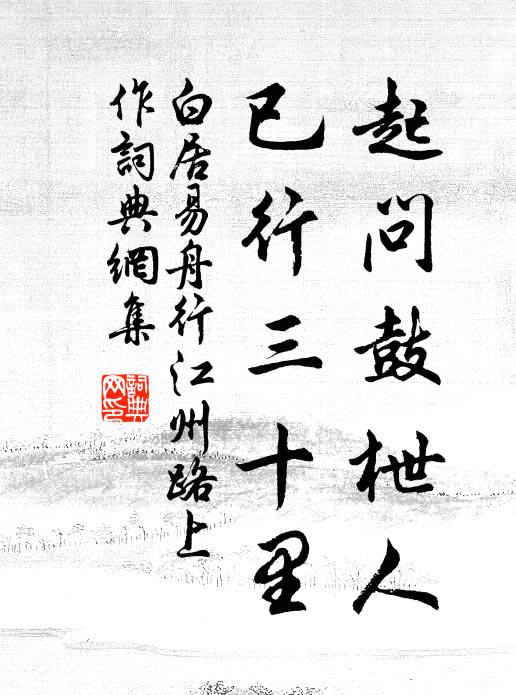 起問鼓枻人
已行三十里
白居易舟行江州路上
作詞典網集
詞典
网印